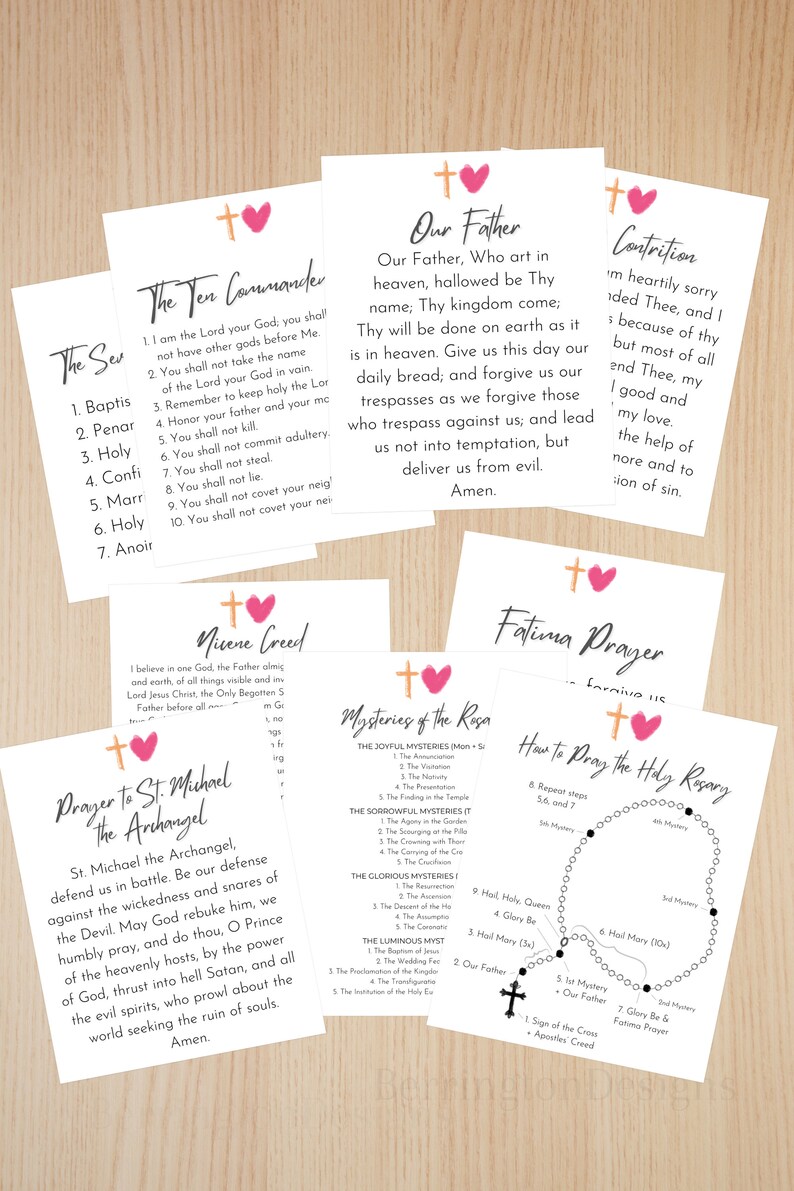 The
1. Baptis
2. Penar
3. Holy
4. Confi
5. Marri
6. Holy
7. Anoir
The Ten
1. I am the Lord your God; you shall
not have other gods before Me.
2. You shall not take the name
of the Lord your God in vain.
3. Remember to keep holy the Lor
4. Honor your father and your mo
5. You shall not kill.
6. You shall not commit adultery.
7. You shall not steal.
8. You shall not lie.
9. You shall not covet your neigh
10. You shall not covet your nei
Our Father
Our Father, Who art in
heaven, hallowed be Thy
name; Thy kingdom come;
Thy will be done on earth as it
is in heaven. Give us this day our
daily bread; and forgive us our
trespasses as we forgive those
who trespass against us; and lead
us not into temptation, but
deliver us from evil.
Amen.
Contrition
m heartily sorry
nded Thee, and I
s because of thy
but most of all
end Thee, my
l good and
my love.
the help of
more and to
sion of sin.
Nicene Creed
I believe in one God, the Father almig
and earth, of all things visible and inv
Lord Jesus Christ, the Only Begotten S
Father before all
Fatima Prayer
forgive us
Prayer to St. Michael
the Archangel
St. Michael the Archangel,
defend us in battle. Be our defense
against the wickedness and snares of
the Devil. May God rebuke him, we
humbly pray, and do thou, O Prince
of the heavenly hosts, by the power
of God, thrust into hell Satan, and all
the evil spirits, who prowl about the
world seeking the ruin of souls.
Amen.
Mysteries of the Rosa
THE JOYFUL MYSTERIES (Mon + Sa
1. The Annunciation
2. The Visitation
3. The Nativity
4. The Presentation
5. The Finding in the Temple
THE SORROWFUL MYSTERIES (T
1. The Agony in the Garden
2. The Scourging at the Pilla
3. The Crowning with Thorr
4. The Carrying of the Cro
5. The Crucifixion
THE GLORIOUS MYSTERIES (
1. The Resurrection
2. The Ascension
3. The Descent of the Ho
4. The Assumptio
5. The Coronatic
THE LUMINOUS MYST
1. The Baptism of Jesus
2. The Wedding Fec
3. The Proclamation of the Kingdo
4. The Transfiguratio
5. The Institution of the Holy Eu
How to Pray the Holy Rosary
8. Repeat steps
5,6, and 7
4th Mystery
5th Mystery
3rd Mystery
9. Hail, Holy, Queen
4. Glory Be
3. Hail Mary (3x)
6. Hail Mary (10x)
2. Our Father
5. 1st Mystery
+ Our Father
2nd Mystery
7. Glory Be &
Fatima Prayer
1. Sign of the Cross
+ Apostles' Creed
BerringtonDesigns